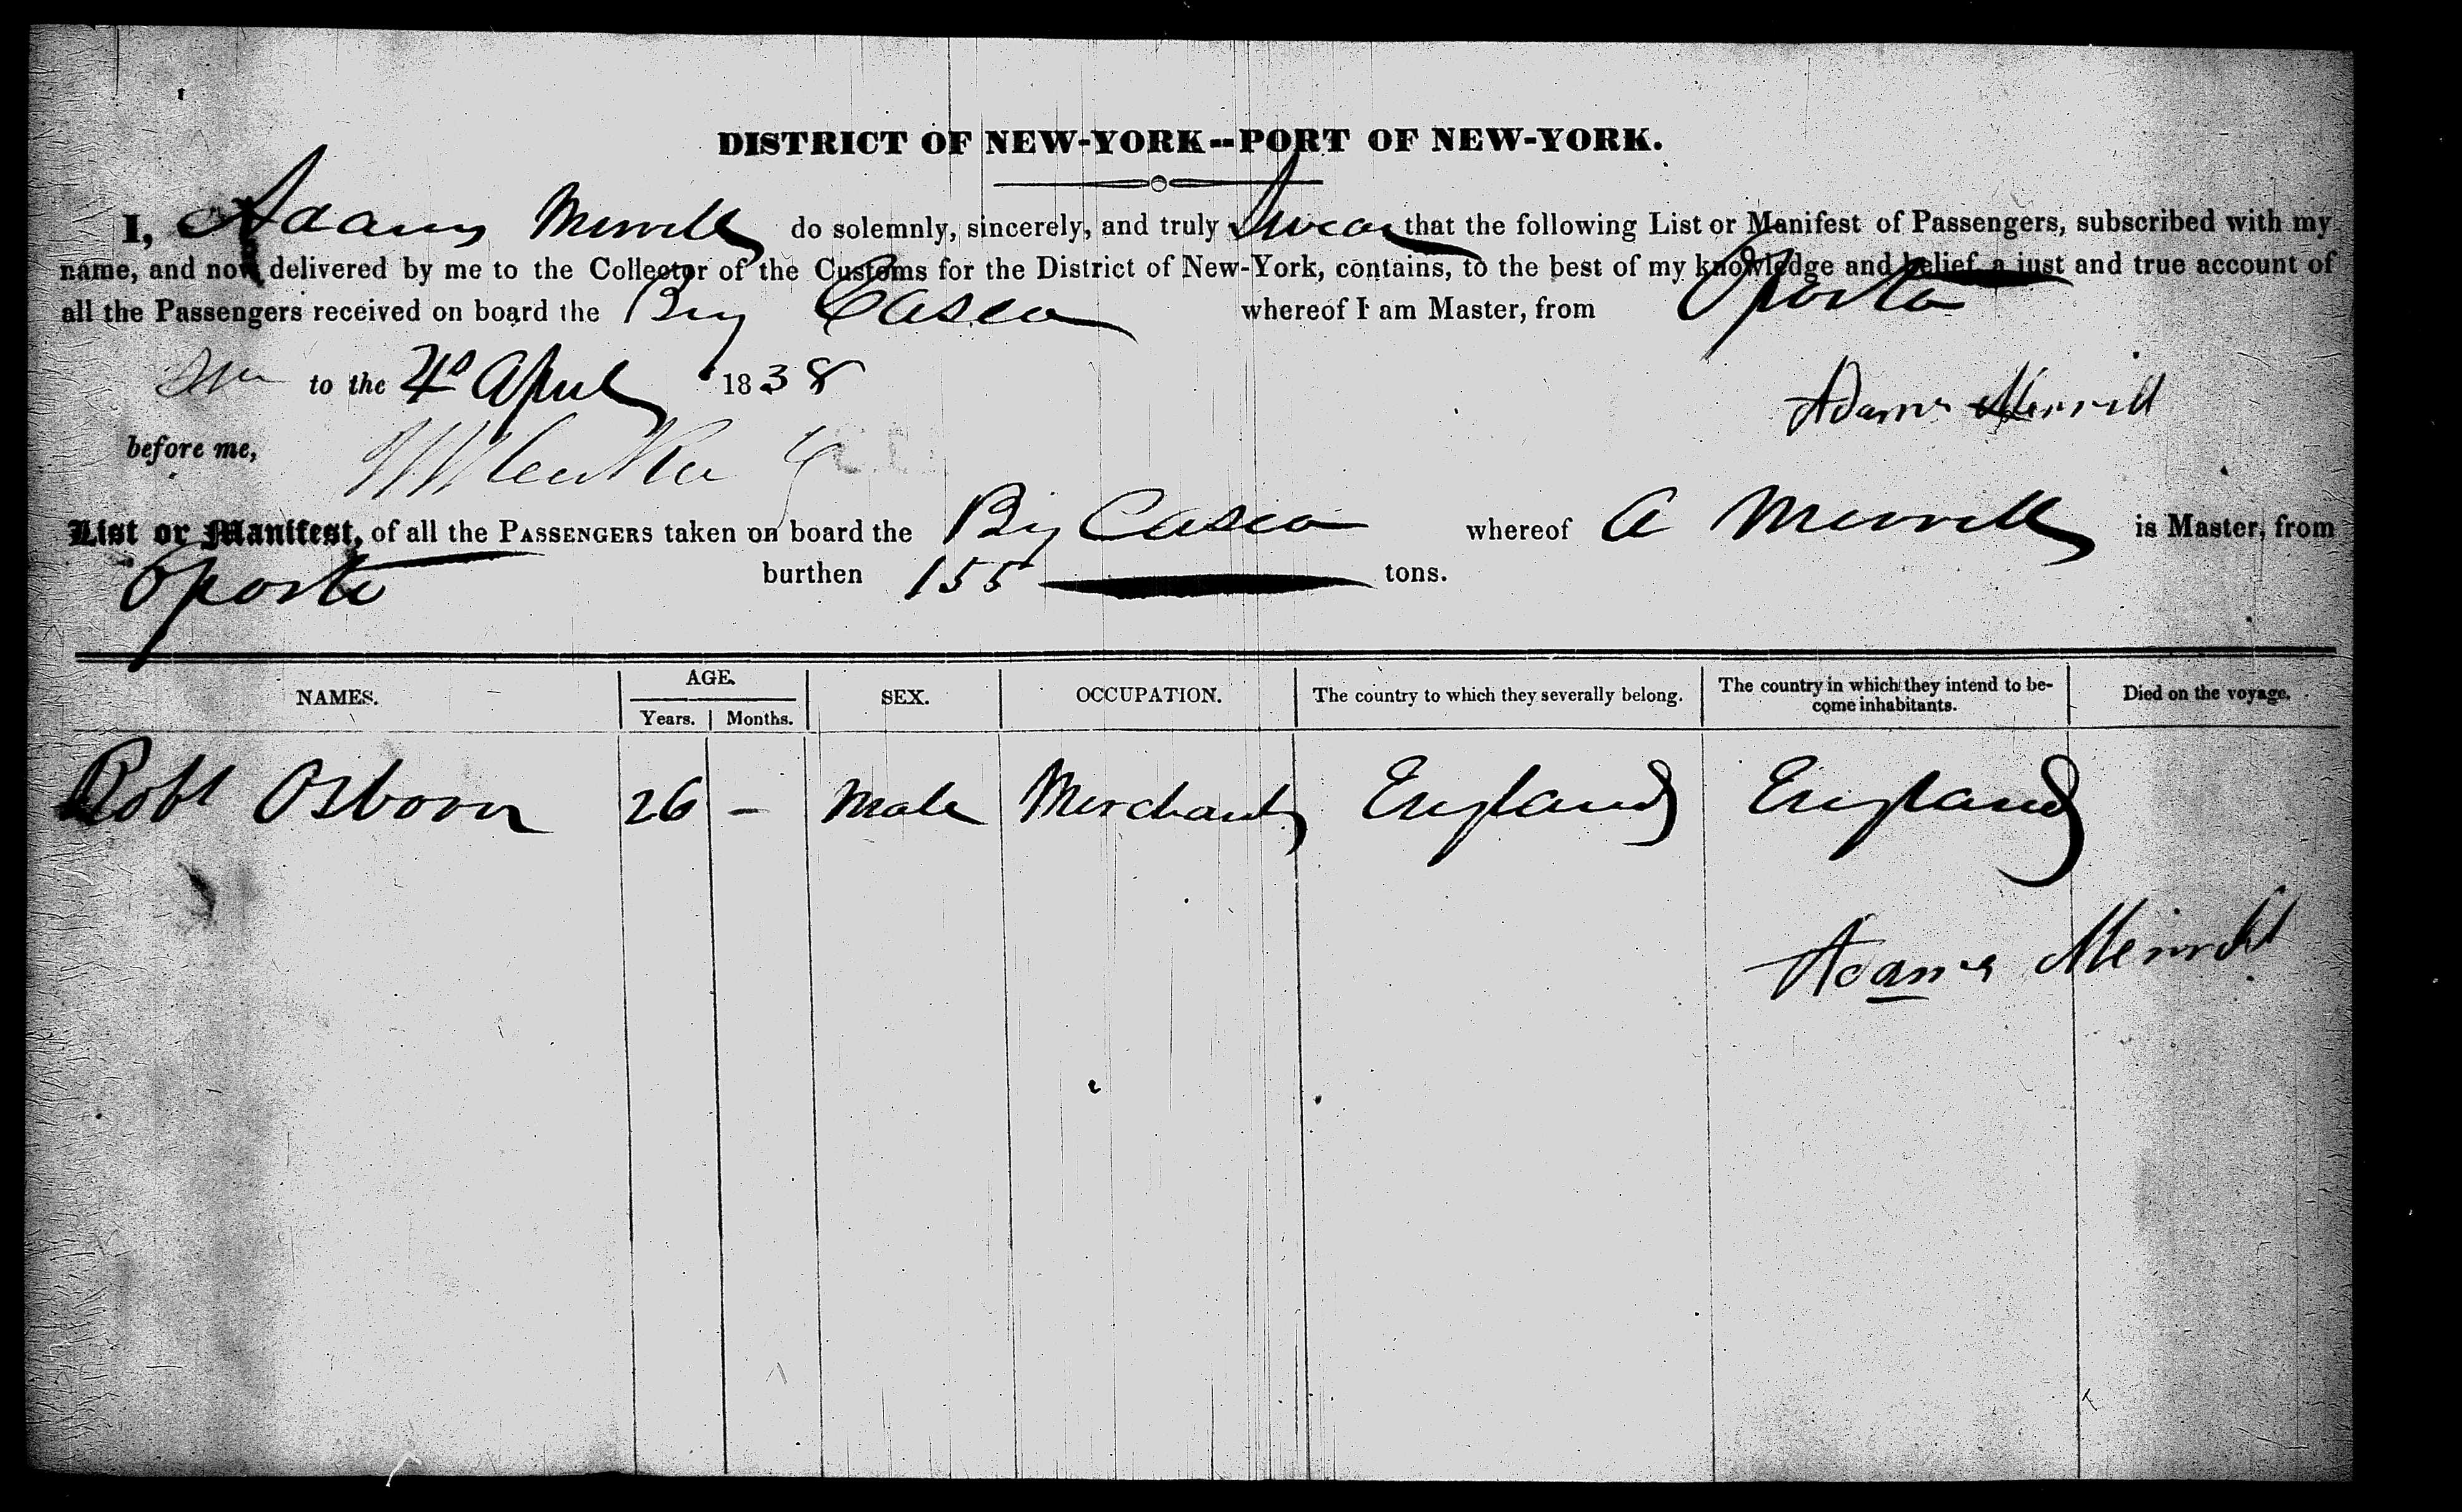 DISTRICT OF NEW-YORK--PORT OF NEW-YORK.
I, Adams Merrill do solemnly, sincerely, and truly Swear that the following List or Manifest of Passengers, subscribed with my
name, and now delivered by me to the Collector of the Customs for the District of New-York, contains, to the best of my knowledge and belief a just and true account of
all the Passengers received on board the Brig Casco whereof I am Master, from Oporto
to the 4th April 1838
Adams Merrill
before me,
List or Manifest, of all the PASSENGERS taken on board the Brig Casco whereof A Merrill is Master, from
Oporto burthen 155 tons.
NAMES. AGE. Years. Months. SEX. OCCUPATION. The country to which they severally belong. The country in which they intend to be-
come inhabitants. Died on the voyage.
Robt Osborn 26 - Male Merchant England England
Adams Merrill